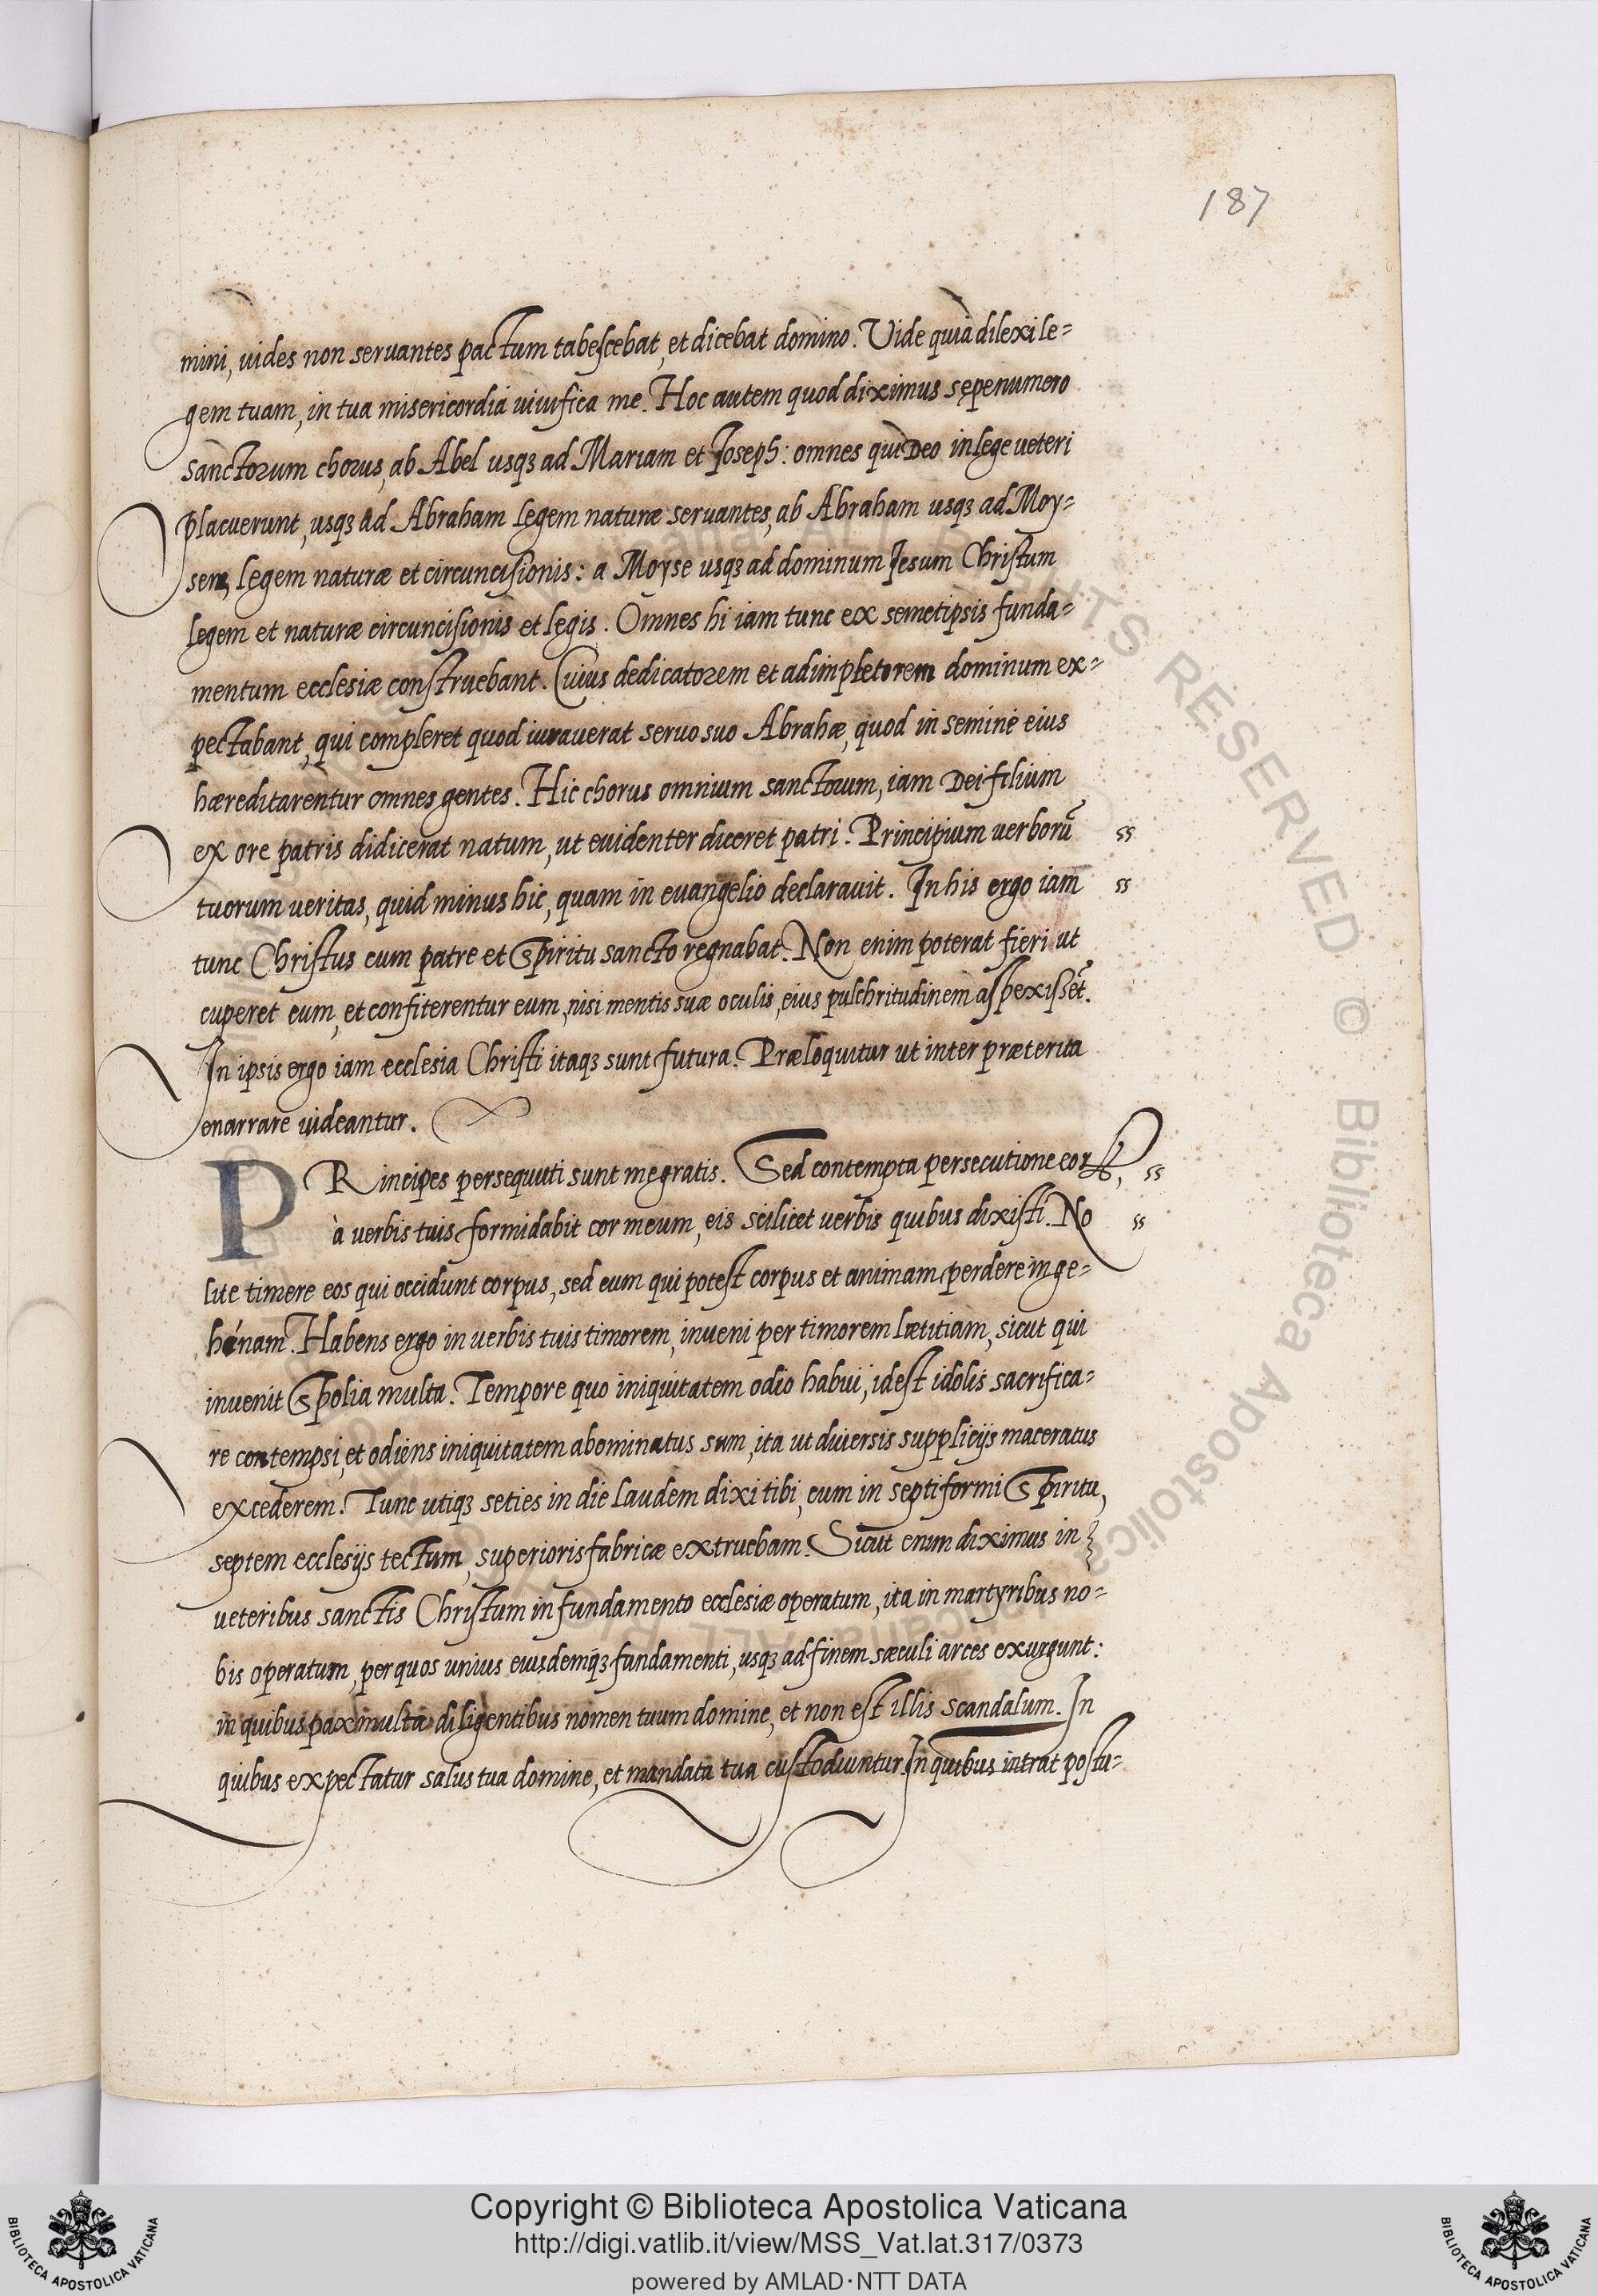 187
mini, uides non seruantes pactum tabescebat, et dicebat domino. Vide quia dilexi le=
gem tuam, in tua misericordia uiuifica me. Hoc autem quod diximus sępenumero
sanctorum chorus, ab Abel usqꝫ ad Mariam et Joseph: omnes qui Deo in lege ueteri
placuerunt, usqꝫ ad Abraham legem naturæ seruantes, ab Abraham usqꝫ ad Moy=
sen, legem naturæ et circuncisionis: a Moyse usqꝫ ad dominum Jesum Christum
legem et naturæ circuncisionis et legis. Omnes hi iam tunc ex semetipsis funda=
mentum ecclesiæ construebant. Cuius dedicatorem et adimpletorem dominum ex=
pectabant, qui compleret quod iurauerat seruo suo Abrahæ, quod in semine eius
hæreditarentur omnes gentes. Hic chorus omnium sanctorum, iam Dei filium
ex ore patris didicerat natum, ut euidenter diceret patri. Principium uerborū ss
tuorum ueritas, quid minus hic, quam in euangelio declarauit. In his ergo iam ss
tunc Christus cum patre et Spiritu sancto regnabat. Non enim poterat fieri ut
cuperet eum, et confiterentur eum, nisi mentis suæ oculis, eius pulchritudinem aspexissēt.
In ipsis ergo iam ecclesia Christi itaqꝫ sunt futura. Præloquitur ut inter præterita
enarrare uideantur.
PRincipes persequuti sunt me gratis. Sed contempta persecutione eorꝝ, ss
à uerbis tuis formidabit cor meum, eis scilicet uerbis quibus dixisti. No ss
lite timere eos qui occidunt corpus, sed eum qui potest corpus et animam perdere in ge=
hénam. Habens ergo in uerbis tuis timorem, inueni per timorem lætitiam, sicut qui
inuenit Spolia multa. Tempore quo iniquitatem odio habui, idest idolis sacrifica=
re contempsi, et odiens iniquitatem abominatus sum, ita ut diuersis supplicijs maceratus
excederem. Tunc utiqꝫ seties in die laudem dixi tibi, cum in septiformi Spiritu,
septem ecclesijs tectum, superioris fabricæ extruebam. Sicut enim diximus in
ueteribus sanctis Christum in fundamento ecclesiæ operatum, ita in martyribus no=
bis operatum, per quos unius eiusdemqꝫ fundamenti, usqꝫ ad finem sæculi arces exurgunt:
in quibus pax multa diligentibus nomen tuum domine, et non est illis scandalum. In
quibus expectatur salus tua domine, et mandata tua custodiuntur. In quibus intrat postu=
Copyright © Biblioteca Apostolica Vaticana
http://digi.vatlib.it/view/MSS_Vat.lat.317/0373
powered by AMLAD·NTT DATA
BIBLIOTECA APOSTOLICA VATICANA
BIBLIOTECA APOSTOLICA VATICANA